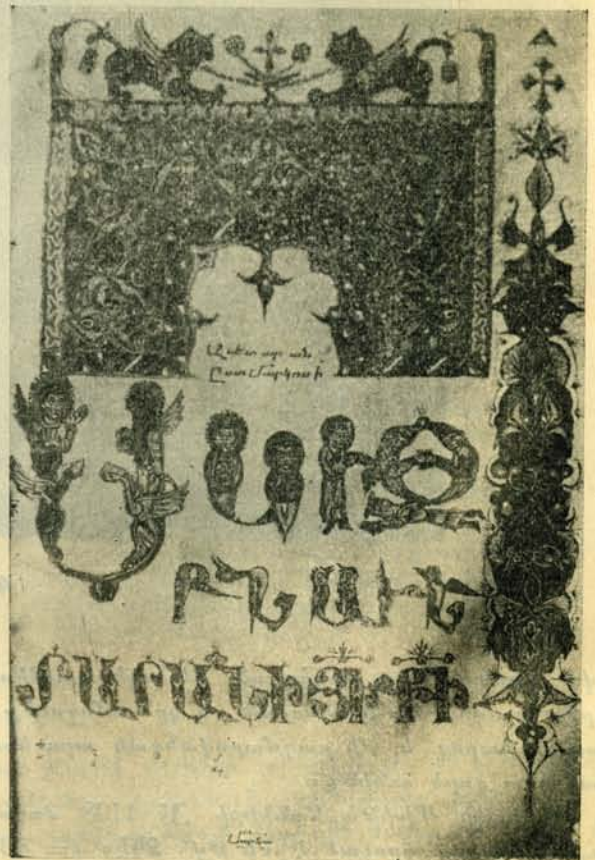 Աւետարան
Ըստ Մարկոսի
Սկիզ
բն աւե
տարանի յի քի